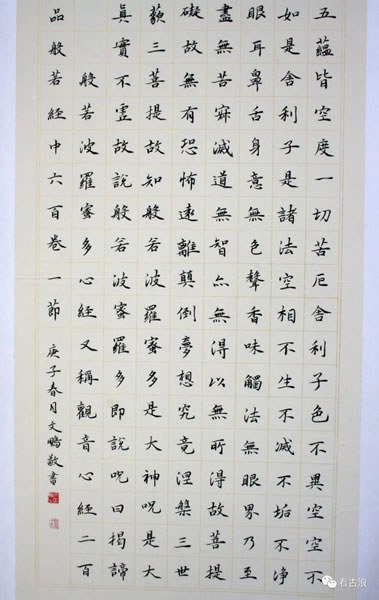 五蘊皆空度一切苦厄舍利子色不異空空不
如是舍利子是諸法空相不生不滅不垢不淨
眼耳鼻舌身意無色聲香味觸法無眼界乃至
盡無苦滅道無智亦無得以無所得故菩提
礙故無有恐怖遠離顛倒夢想究竟涅槃三世
藐三菩提故知般若波羅蜜多是大神呪是大
真實不虛故說般若波蜜羅多即說呪曰揭諦
般若波羅蜜多心經又稱觀音心經二百
品般若經中六百卷一節 庚子春月文鵬敬書
看古浪